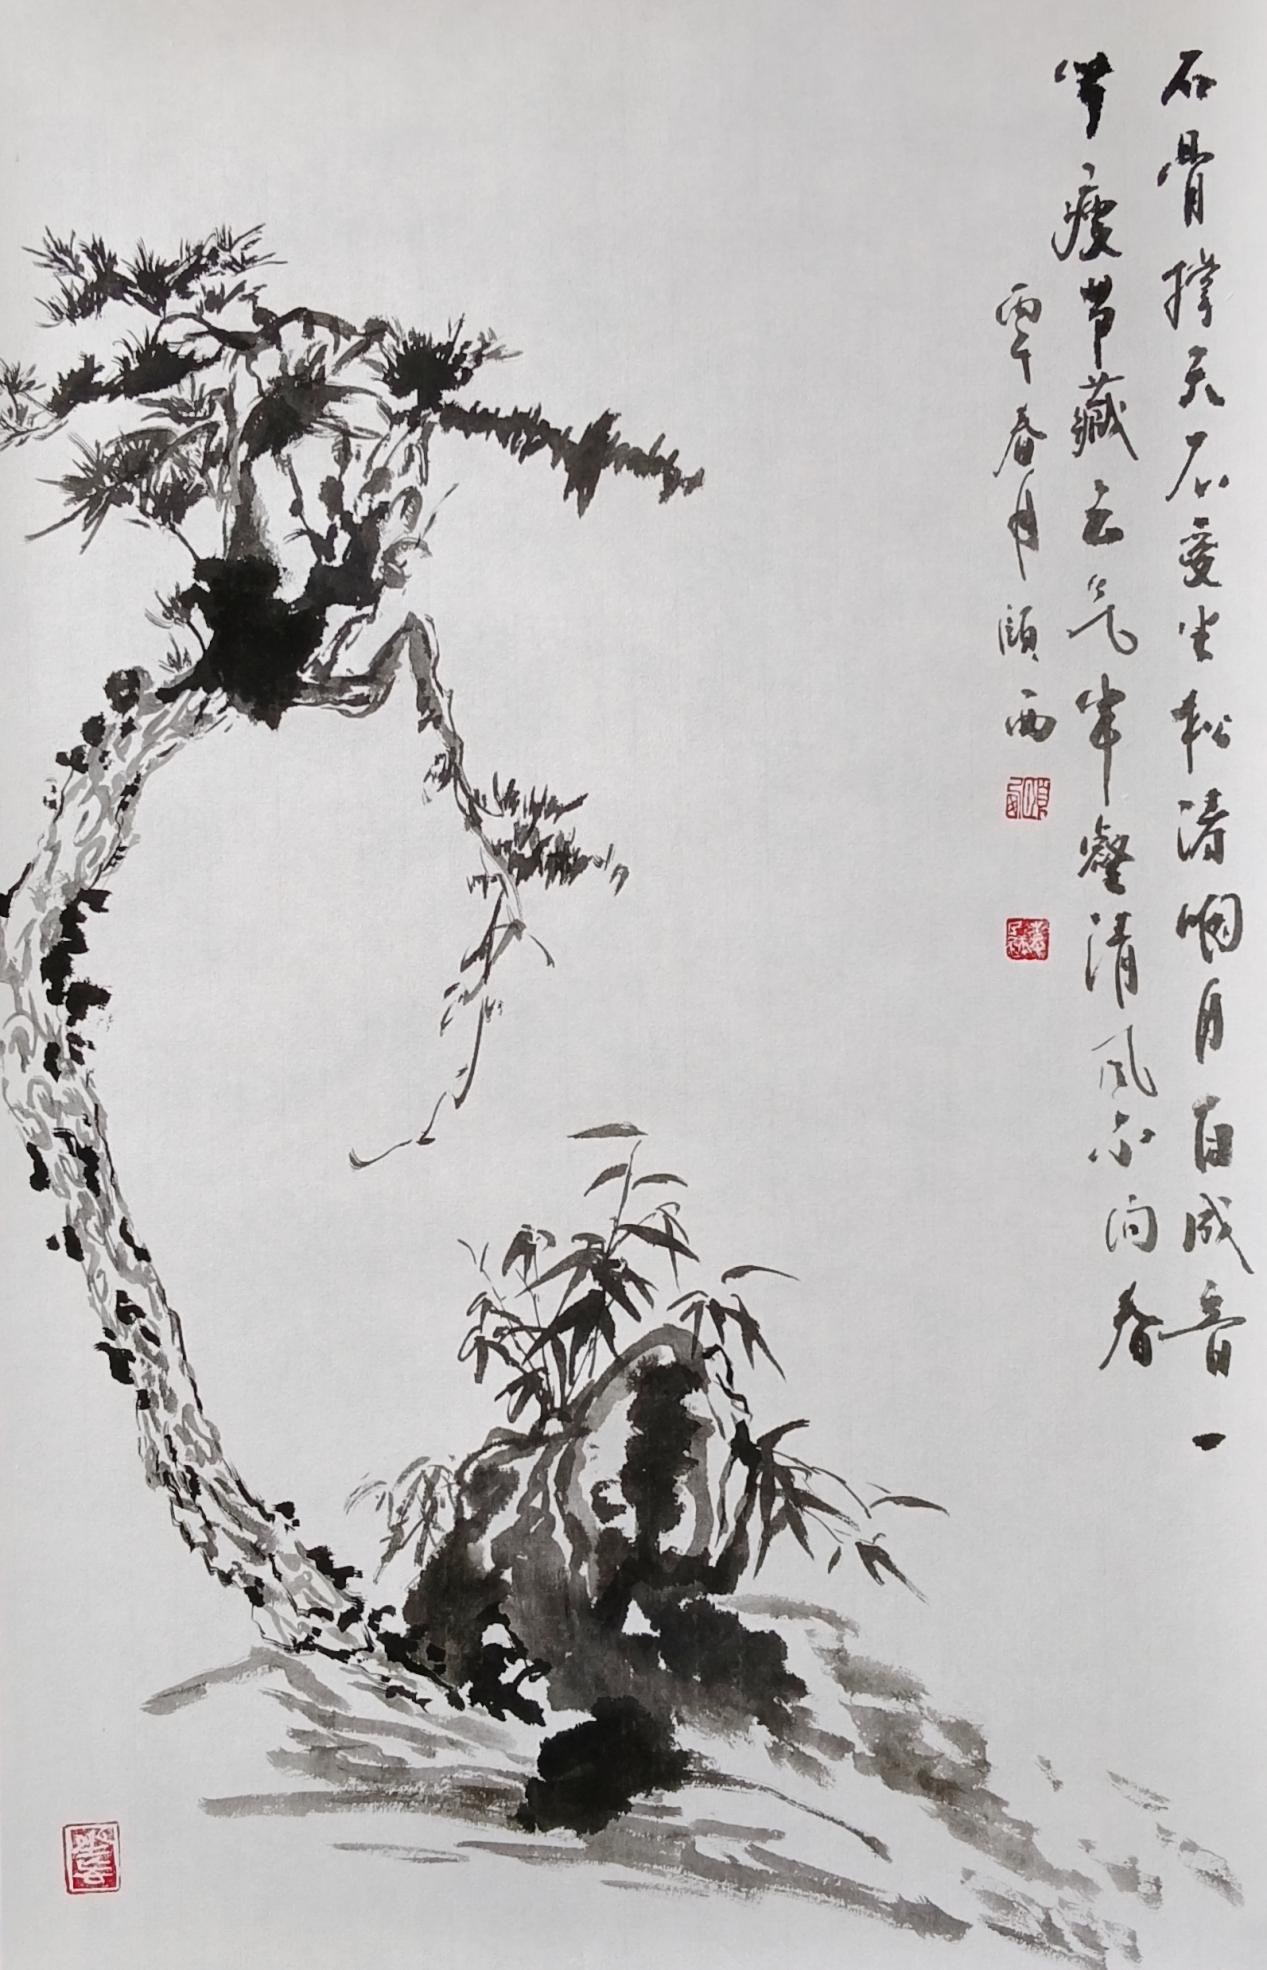 石骨撑天不受尘松涛啣月自成音一
竿瘦节藏云气半壑清风不问春
丙午春月頤西